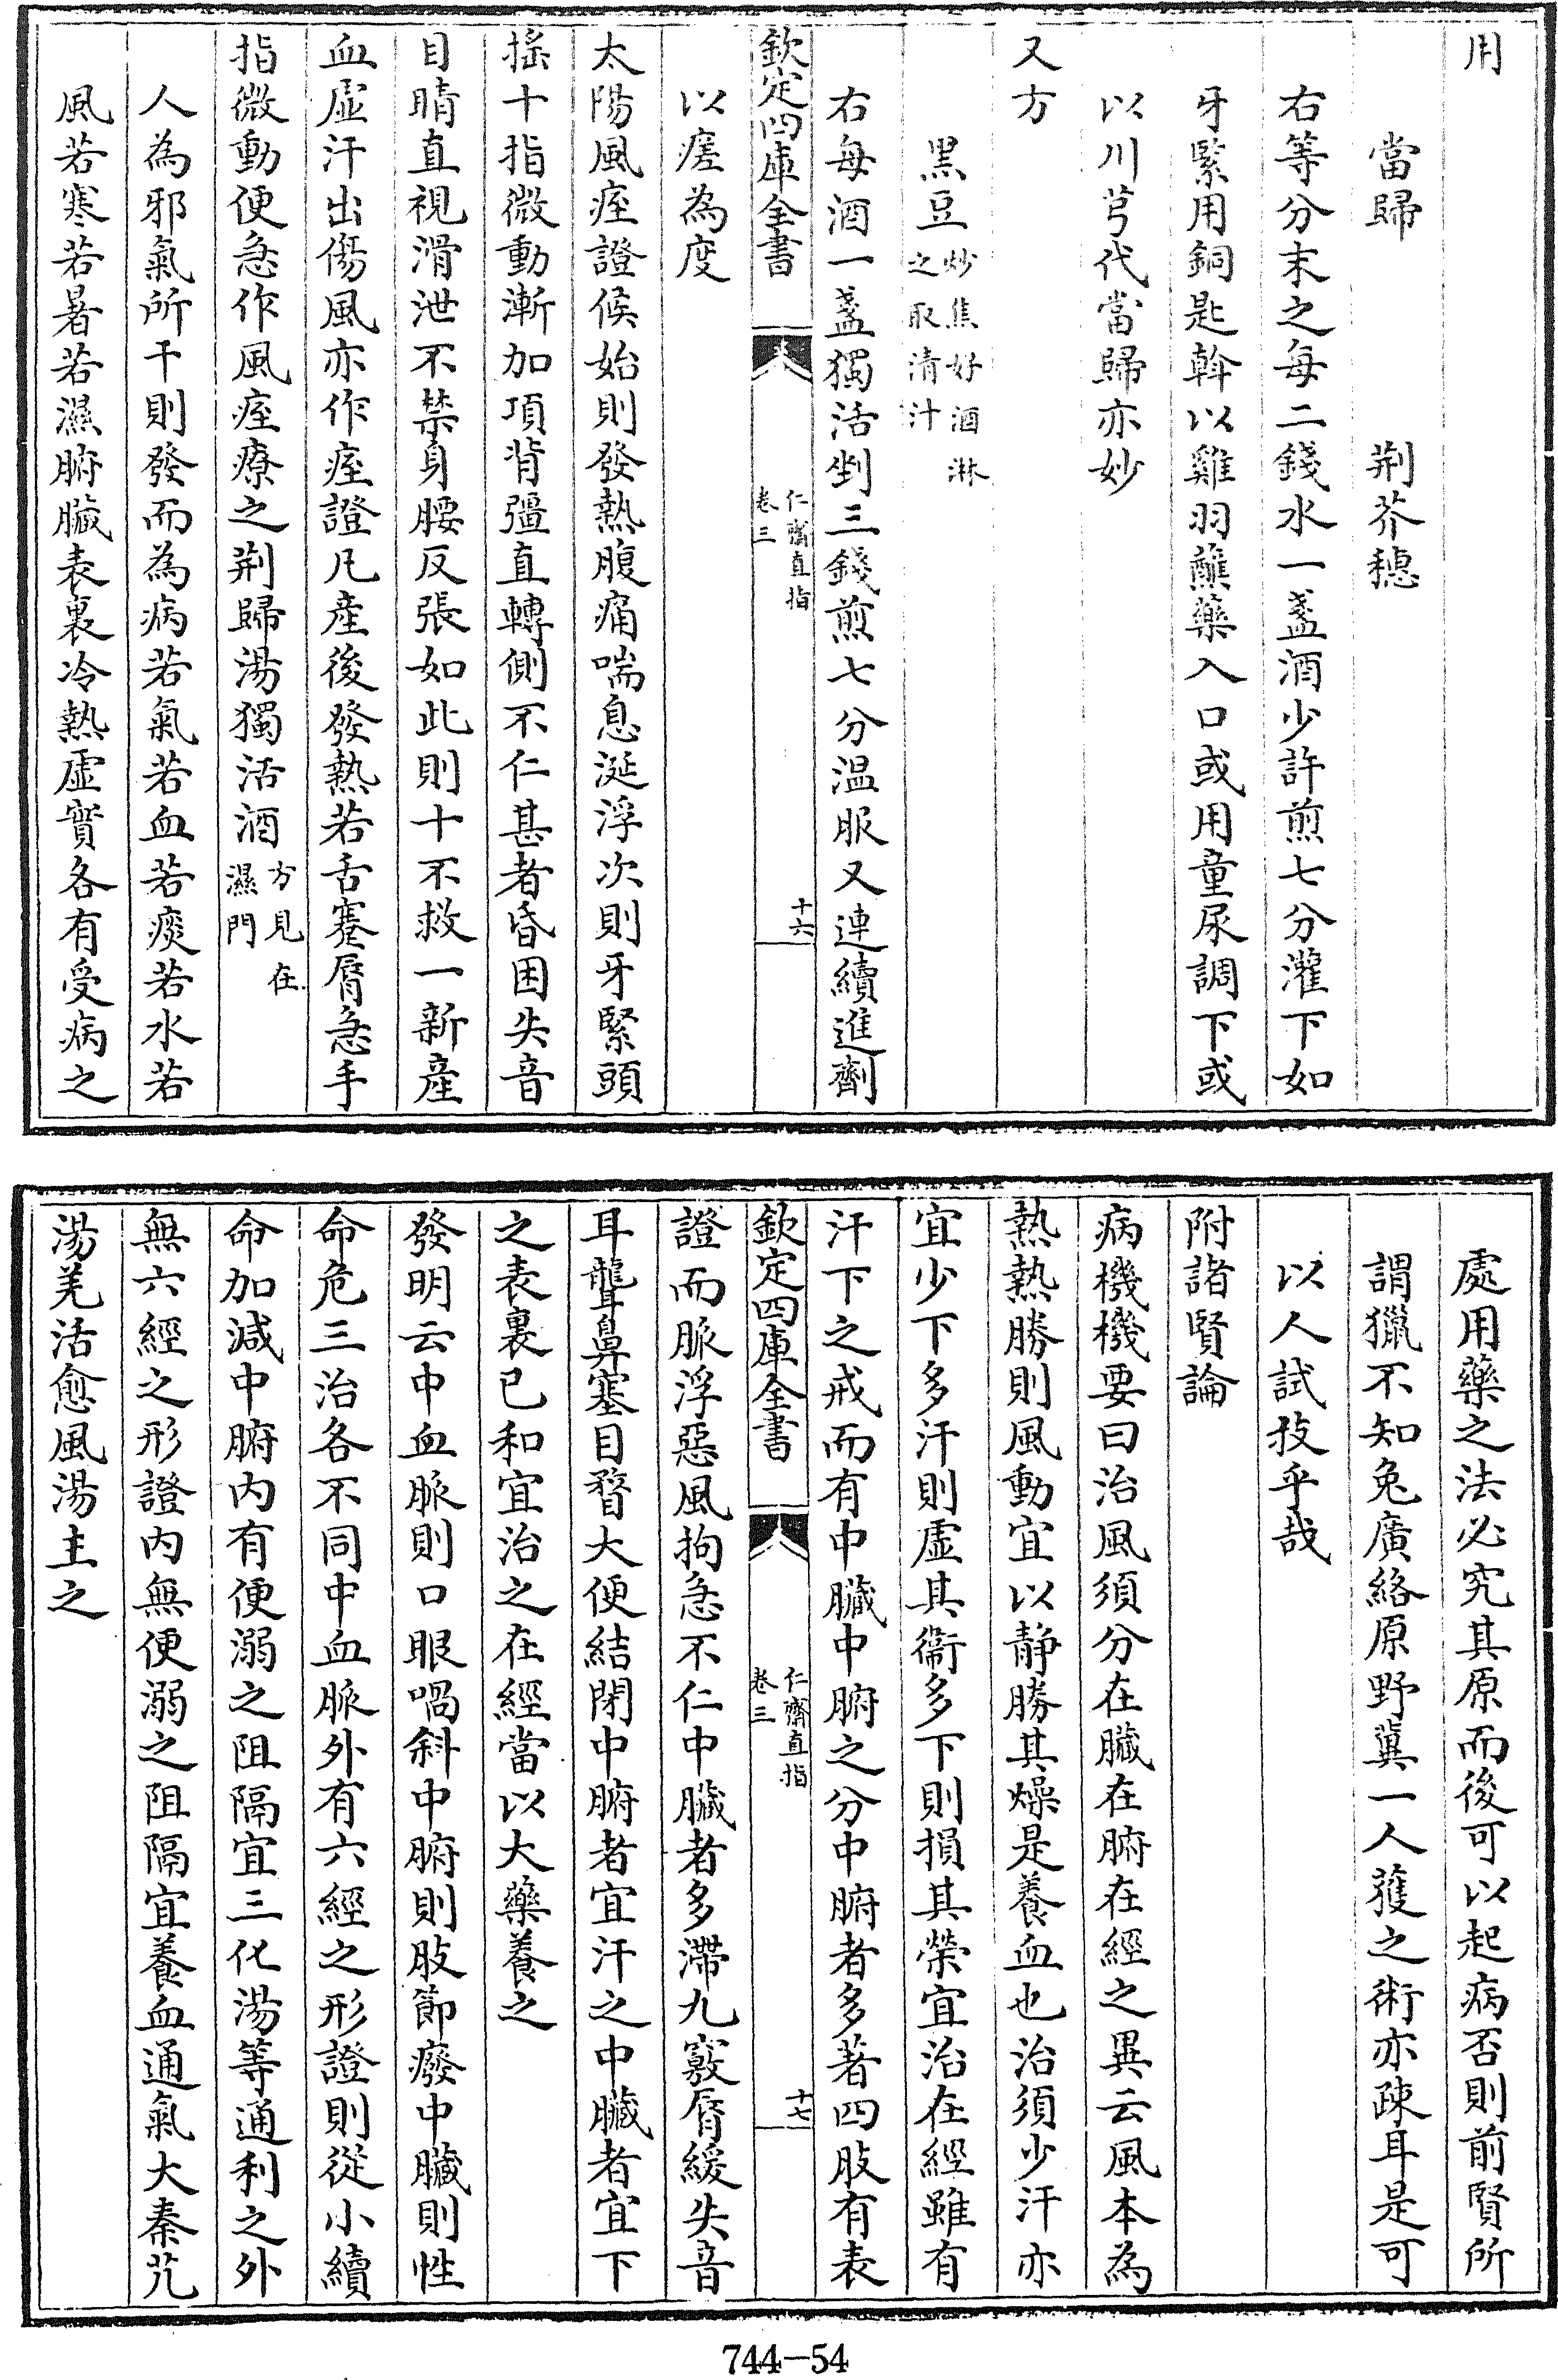 用
當歸　荆芥穗
右等分末之每二錢水一盞酒少許煎七分灌下如
牙緊用銅匙斡以雞羽蘸藥入口或用童尿調下或
以川芎代當歸亦妙
又方
黒豆炒焦好酒淋之取清汁
右每酒一盞獨活剉三錢煎七分温服又連續進劑
欽定四庫全書　仁齋直指卷三　十六
以瘥為度
太陽風痓證候始則發熱腹痛喘息涎浮次則牙緊頭
摇十指微動漸加項背彊直轉側不仁甚者昏困失音
目睛直視滑泄不禁身腰反張如此則十不救一新産
血虛汗出傷風亦作痓證凡産後發熱若舌蹇脣急手
指微動便急作風痓療之荆歸湯獨活酒方見在濕門
人為邪氣所干則發而為病若氣若血若痰若水若
風若寒若暑若濕腑臟表裏冷熱虛實各有受病之
處用藥之法必究其原而後可以起病否則前賢所
謂獵不知兔廣絡原野冀一人獲之術亦疎耳是可
以人試技乎哉
附諸賢論
病機機要曰治風須分在臟在腑在經之異云風本為
熱熱勝則風動宜以静勝其燥是養血也治須少汗亦
宜少下多汗則虛其衞多下則損其榮宜治在經雖有
汗下之戒而有中臟中腑之分中腑者多著四肢有表
欽定四庫全書　仁齋直指卷三　十七
證而脈浮惡風拘急不仁中臟者多滯九竅脣緩失音
耳聾鼻塞目瞀大便結閉中腑者宜汗之中臟者宜下
之表裏已和宜治之在經當以大藥養之
發明云中血脈則口眼喎斜中腑則肢節癈中臟則性
命危三治各不同中血脈外有六經之形證則從小續
命加減中腑内有便溺之阻隔宜三化湯等通利之外
無六經之形證内無便溺之阻隔宜養血通氣大秦艽
湯羌活愈風湯主之
744-54